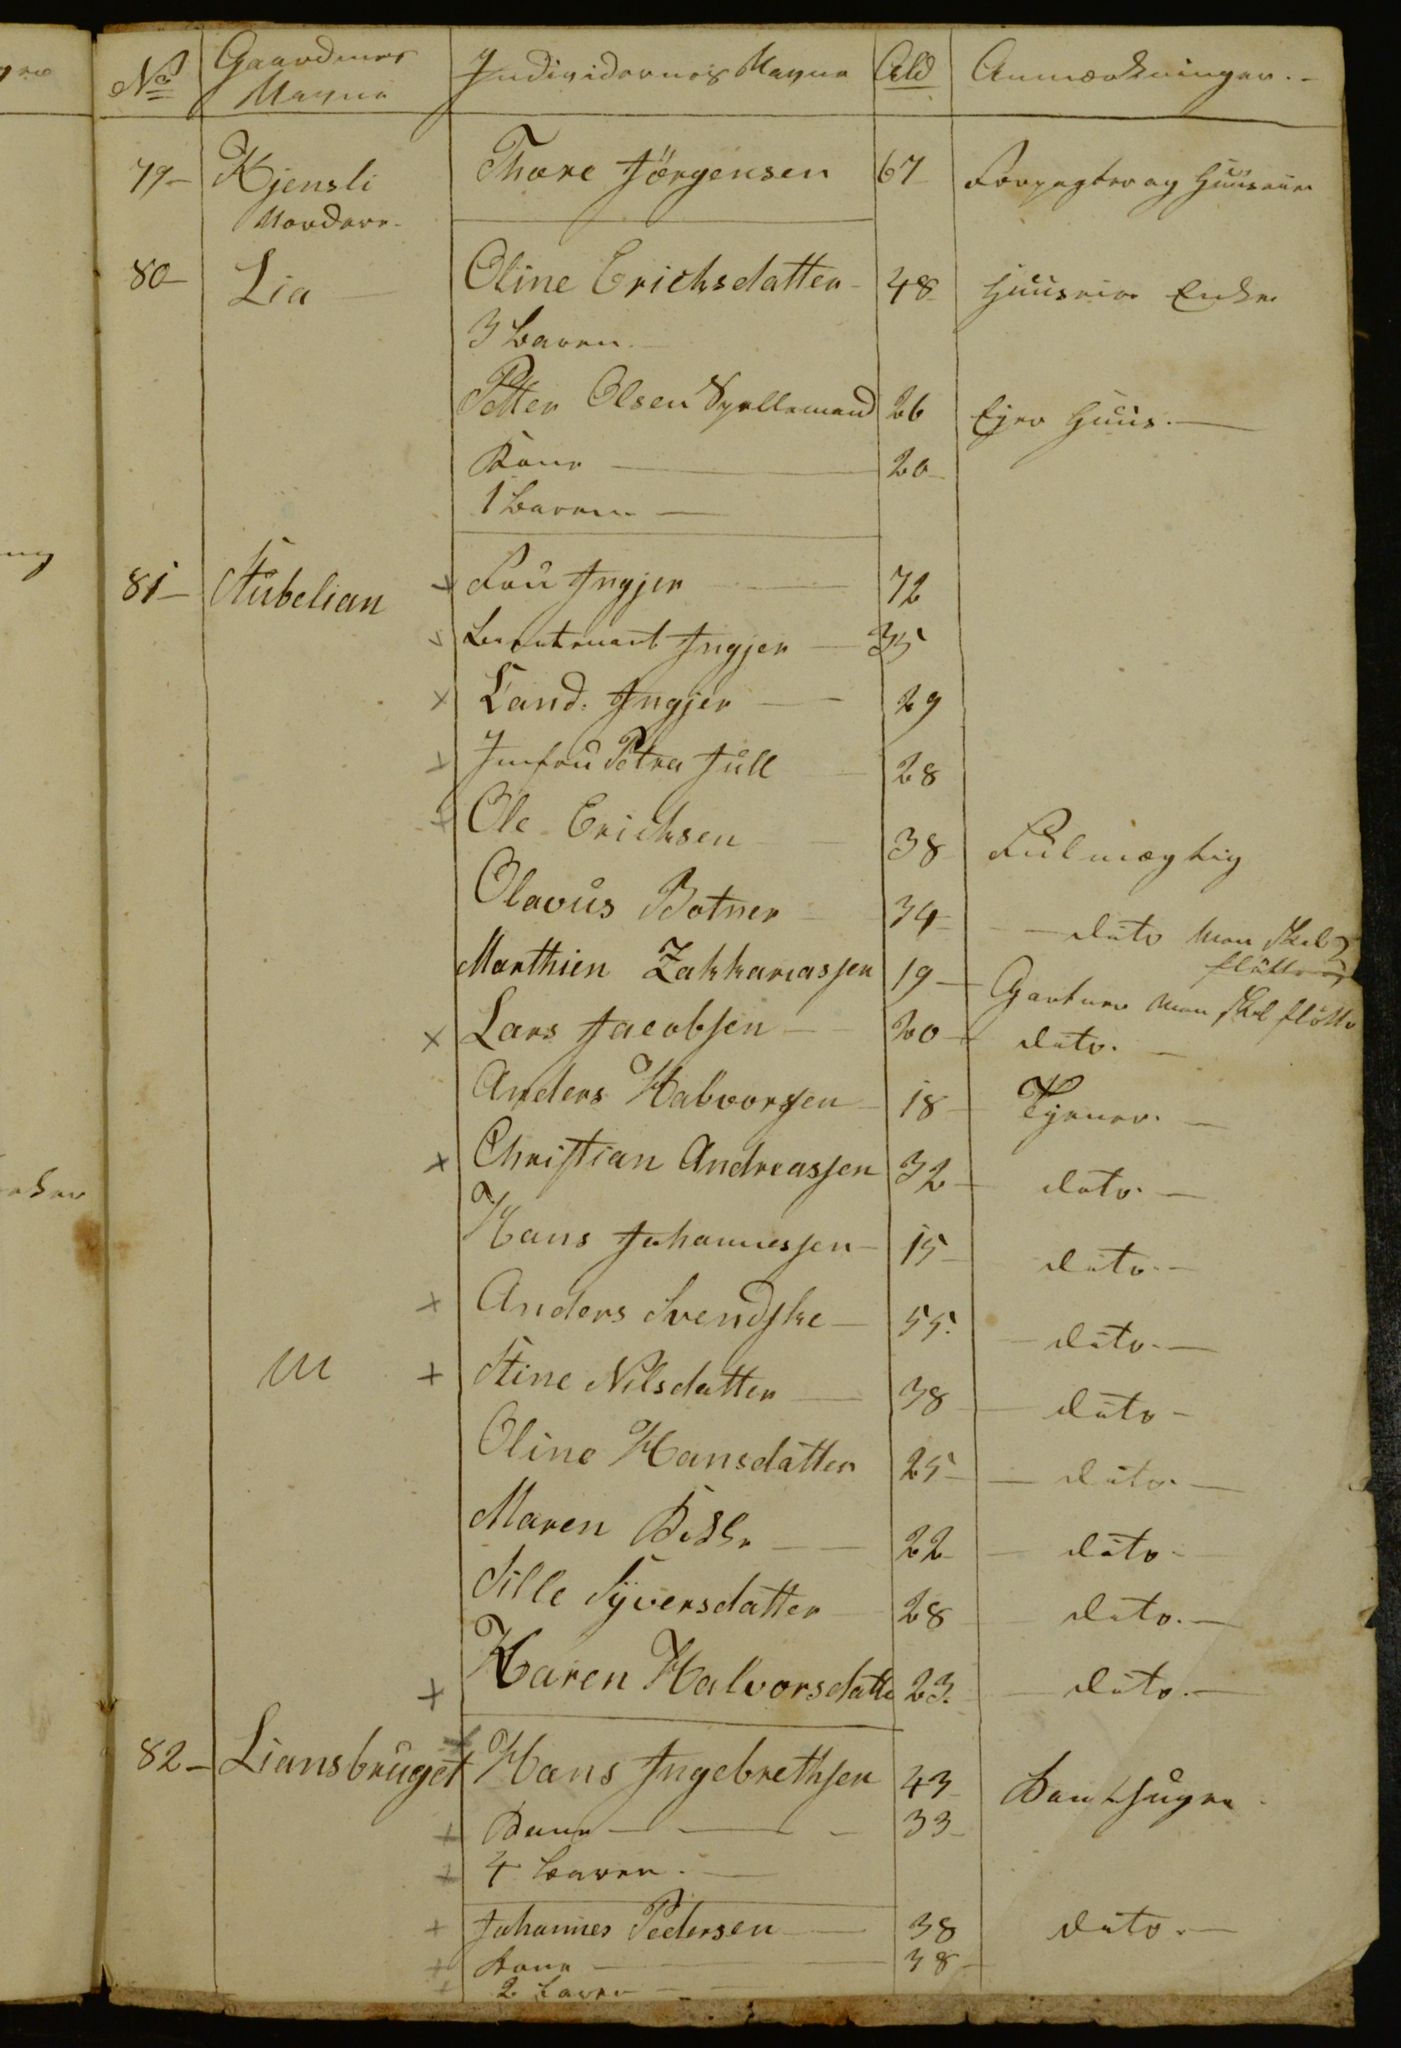 No Gaardenes Navne Individernes Navne Ald Anmærkninger.
79 Kjensli Nordere Thore Jörgensen 67 Forpagter og Huuseier
80 Lia Oline Erichsdatter 48 Huuseier Enke
3 Baren
Petter Olsen Spellemand 26 Ejer Huus.
Kone 20
1 Baren
81 Stubelian Fru Ingjer 72
Leutenant Ingjer 35
Cand. Ingjer 29
Jmfru Petra Jull 28
Ole Erichsen 38 Fulmægtig
Olavus Botner 34 dito men skal flötte
Marthien Zakkariassen 19 Gartner men skal flötte
Lars Jacobsen 20 dito.
Anders Halvorsen 18 Tjener.
Christian Andreassen 32 dito.
Hans Johannessen 15 dito.
Anders Svendske 55. dito.
Stine Nilsdatter 38 dito
Oline Hansdatter 25 dito.
Maren 22 dito
Sille Syversdatter 28 dito.
Karen Halvorsdatte 23. dito.
82 Liansbruget Hans Ingebrethsen 43
Kone 33
4 Baren.
Johannes Pedersen 38 dito.
Kone 38
2 Baren